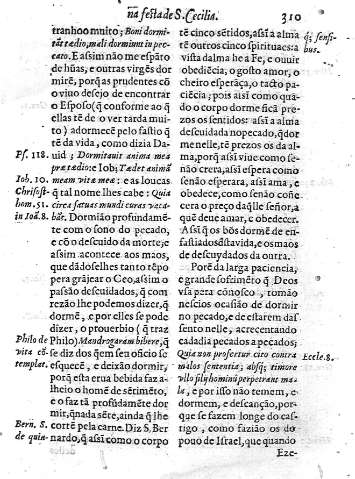 na festa de S. Cecilia.
310
tranhoo muito; Boni dormitãt
tædio, mali dormiunt in pec-
cato. E assim não me espãto
de hũas, e outras virgẽs dor-
mirẽ, porq̃ as prudentes cõ
o vivo desejo de encontrar
o Esposo (q̃ conforme ao q̃
ellas tẽ de o ver tarda mui-
to) adormecẽ pelo fastio q̃
tẽ da vida, como dizia Da-
Ps. 118.
uid; Dormitauit anima mea
præ tædio: e Iob; Tædet animã
Iob. 10.
meam vitæ meæ: e as loucas
Chrisost.
q̃ tal nome lhes cabe: Quia
hom. 51.
circa fatuas mundi curas vaca-
in Ioã. 8.
bãt. Dormião profundamẽ-
te com o sono do pecado,
e cõ o descuido da morte; e
assim acontece aos maos,
que dãdoselhes tanto tẽpo
pera grãjear o Ceo, assim o
passão descuidados, q̃ com
rezão lhe podemos dizer, q̃
dormẽ, e por elles se pode
dizer, o prouerbio (q̃ traz
Philo de
Philo) Mandragoram bibere, q̃
vita cõ-
se diz dos q̃ em seu oficio se
templat.
esquecẽ, e deixão dormir,
porq̃ esta erua bebida faz a-
lheio o homẽ de sẽtimẽto,
e o faz tã profũdamẽte dor-
mir, q̃ nada sẽte, ainda q̃ lhe
Bern. S.
cortẽ pela carne. Diz S. Ber-
nardo, q̃ assi como o corpo
tẽ cinco sẽtidos, assi a alma
tẽ outros cinco spirituaes: a
vista dalma he a Fe, o ouuir
obediẽcia, o gosto amor, o
cheiro esperãça, o tacto pa-
ciẽcia; pois assi como quã-
do o corpo dorme fica pre-
zos os sentidos: assi a alma
descuidada no pecado, q̃ dor
me nelle, tẽ prezos os da al-
ma, porq̃ assi viue como se
não crera, assi espera como
senão esperara, assi ama, e
obedece, como senão conhe
cera o preço daq̃lle señor, a
quẽ deue amar, e obedecer.
Assi q̃ os bõs dormẽ de en-
fastiados desta vida, e os maos
de descuydados da outra.
Porẽ da larga paciencia,
e grande sofrimẽto q̃ Deos
vsa pera cõnosco, tomão
nescios ocasião de dormir
no pecado, e de estarem das
sento nelle, acrecentando
cadadia pecados a pecados;
Quia non profertur cito contra
Eccle. 8.
malos sententia; absq; timore
vllo filij hominũ perpetrant ma-
la, e por isso não temem, e
dormem, e descanção, por-
que se fazem longe do cas-
tigo, como fazião os do
pouo de Israel, que quando
Eze-